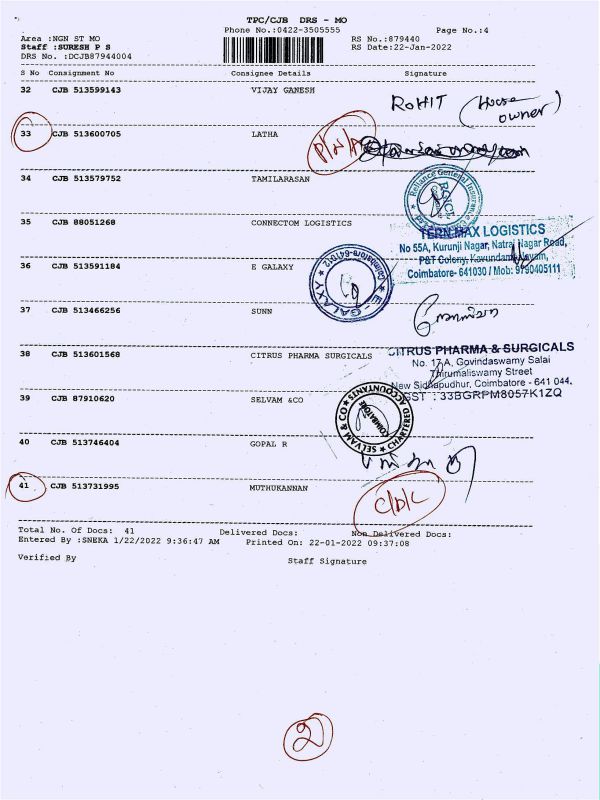 TPC/CJB DRS - MO
Phone No.:0422-3505555 Page No.:4
Area :NGN ST MO RS No.:879440
Staff :SURESH P S RS Date:22-Jan-2022
DRS No. :DCJB87944004
S No Consignment No Consignee Details Signature
32 CJB 513599143 VIJAY GANESH
ROHIT (House owner)
33 CJB 513600705 LATHA
P/N/A
34 CJB 513579752 TAMILARASAN
Reliance General Insurance
RGICL
35 CJB 88051268 CONNECTOM LOGISTICS
TERN MAX LOGISTICS
No 55A, Kurunji Nagar, Natraj Nagar Road,
P&T Colony, Kavundampalayam,
Coimbatore- 641030 / Mob: 9790405111
36 CJB 513591184 E GALAXY
E-GALAXY
Coimbatore-641012
37 CJB 513466256 SUNN
38 CJB 513601568 CITRUS PHARMA SURGICALS
CITRUS PHARMA & SURGICALS
No. 17-A, Govindaswamy Salai
Thirumaliswamy Street
New Sidhapudhur, Coimbatore - 641 044.
GST : 33BGRPM8057K1ZQ
39 CJB 87910620 SELVAM &CO
SELVAM & CO
CHARTERED ACCOUNTANTS
COIMBATORE
40 CJB 513746404 GOPAL R
41 CJB 513731995 MUTHUKANNAN
C/D/L
Total No. Of Docs: 41 Delivered Docs: Non Delivered Docs:
Entered By :SNEKA 1/22/2022 9:36:47 AM Printed On: 22-01-2022 09:37:08
Verified By Staff Signature
2